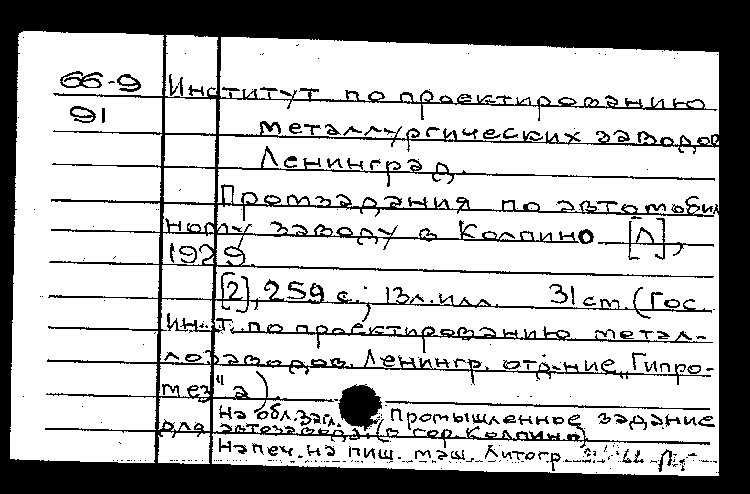 66-9 Институт по проектированию
91 металлургических заводов
Ленинград.
Промзадания по автомобил
ному заводу в Колпино [Л],
1929.
[2], 259 с.; 13л.илл. 31 cm. (Гос.
Ин-т. по проектированию метал-
лозаводов. Ленингр. отд-ние „Гипро-
мез"а)
На обл.загл. Промышленное задание
для автозавода (в гор. Колпино)
Напеч. на пиш. маш. Литогр.